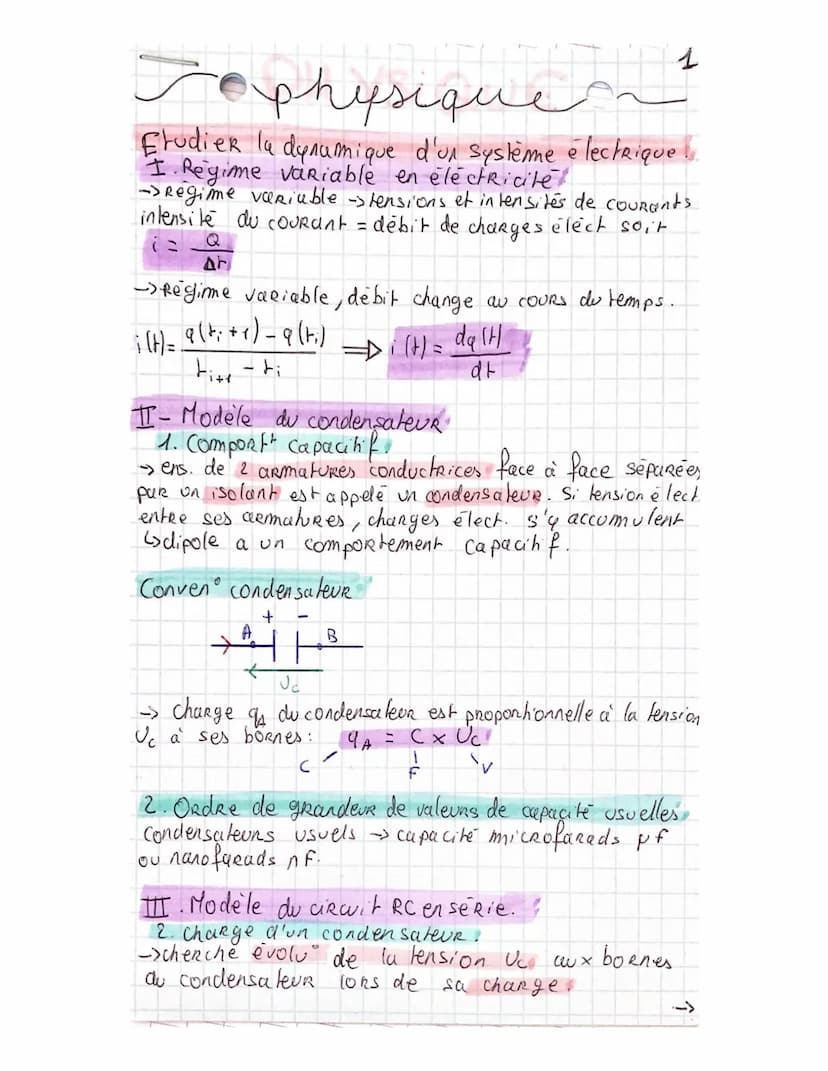 1
physique
Etudier la dynamique d'un système électrique.
I. Régime variable en éléctricité
→ régime variable → tensions et intensités de courants
intensité du courant = débit de charges élect soit
i = Q / Δt
→ Régime variable, débit change au cours du temps.
i(t) = q(ti+1) - q(ti) / ti+1 - ti ⟹ i(t) = dq(t) / dt
II - Modèle du condensateur
1. Comportt capacitif.
→ ens. de 2 armatures conductrices face à face séparées
par un isolant est appelé un condensateur. Si tension élect
entre ses armatures, charges élect. s'y accumulent
↳ dipole a un comportement capacitif.
Conven° condensateur
+ -
A B
Uc
→ charge qA du condensateur est proportionnelle à la tension
Uc à ses bornes : qA = C x Uc
C F V
2. Ordre de grandeur de valeurs de capacité usuelles
Condensateurs usuels → capacité microfarads µf
ou nanofarads nF.
III. Modèle du circuit RC en série.
2. charge d'un condensateur :
→ cherche évolu° de la tension Uc aux bornes
du condensateur lors de sa charge.
→